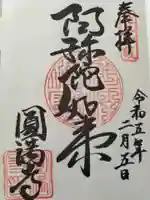 奉拝
令和五年二月五日
阿弥陀如来
圓満寺